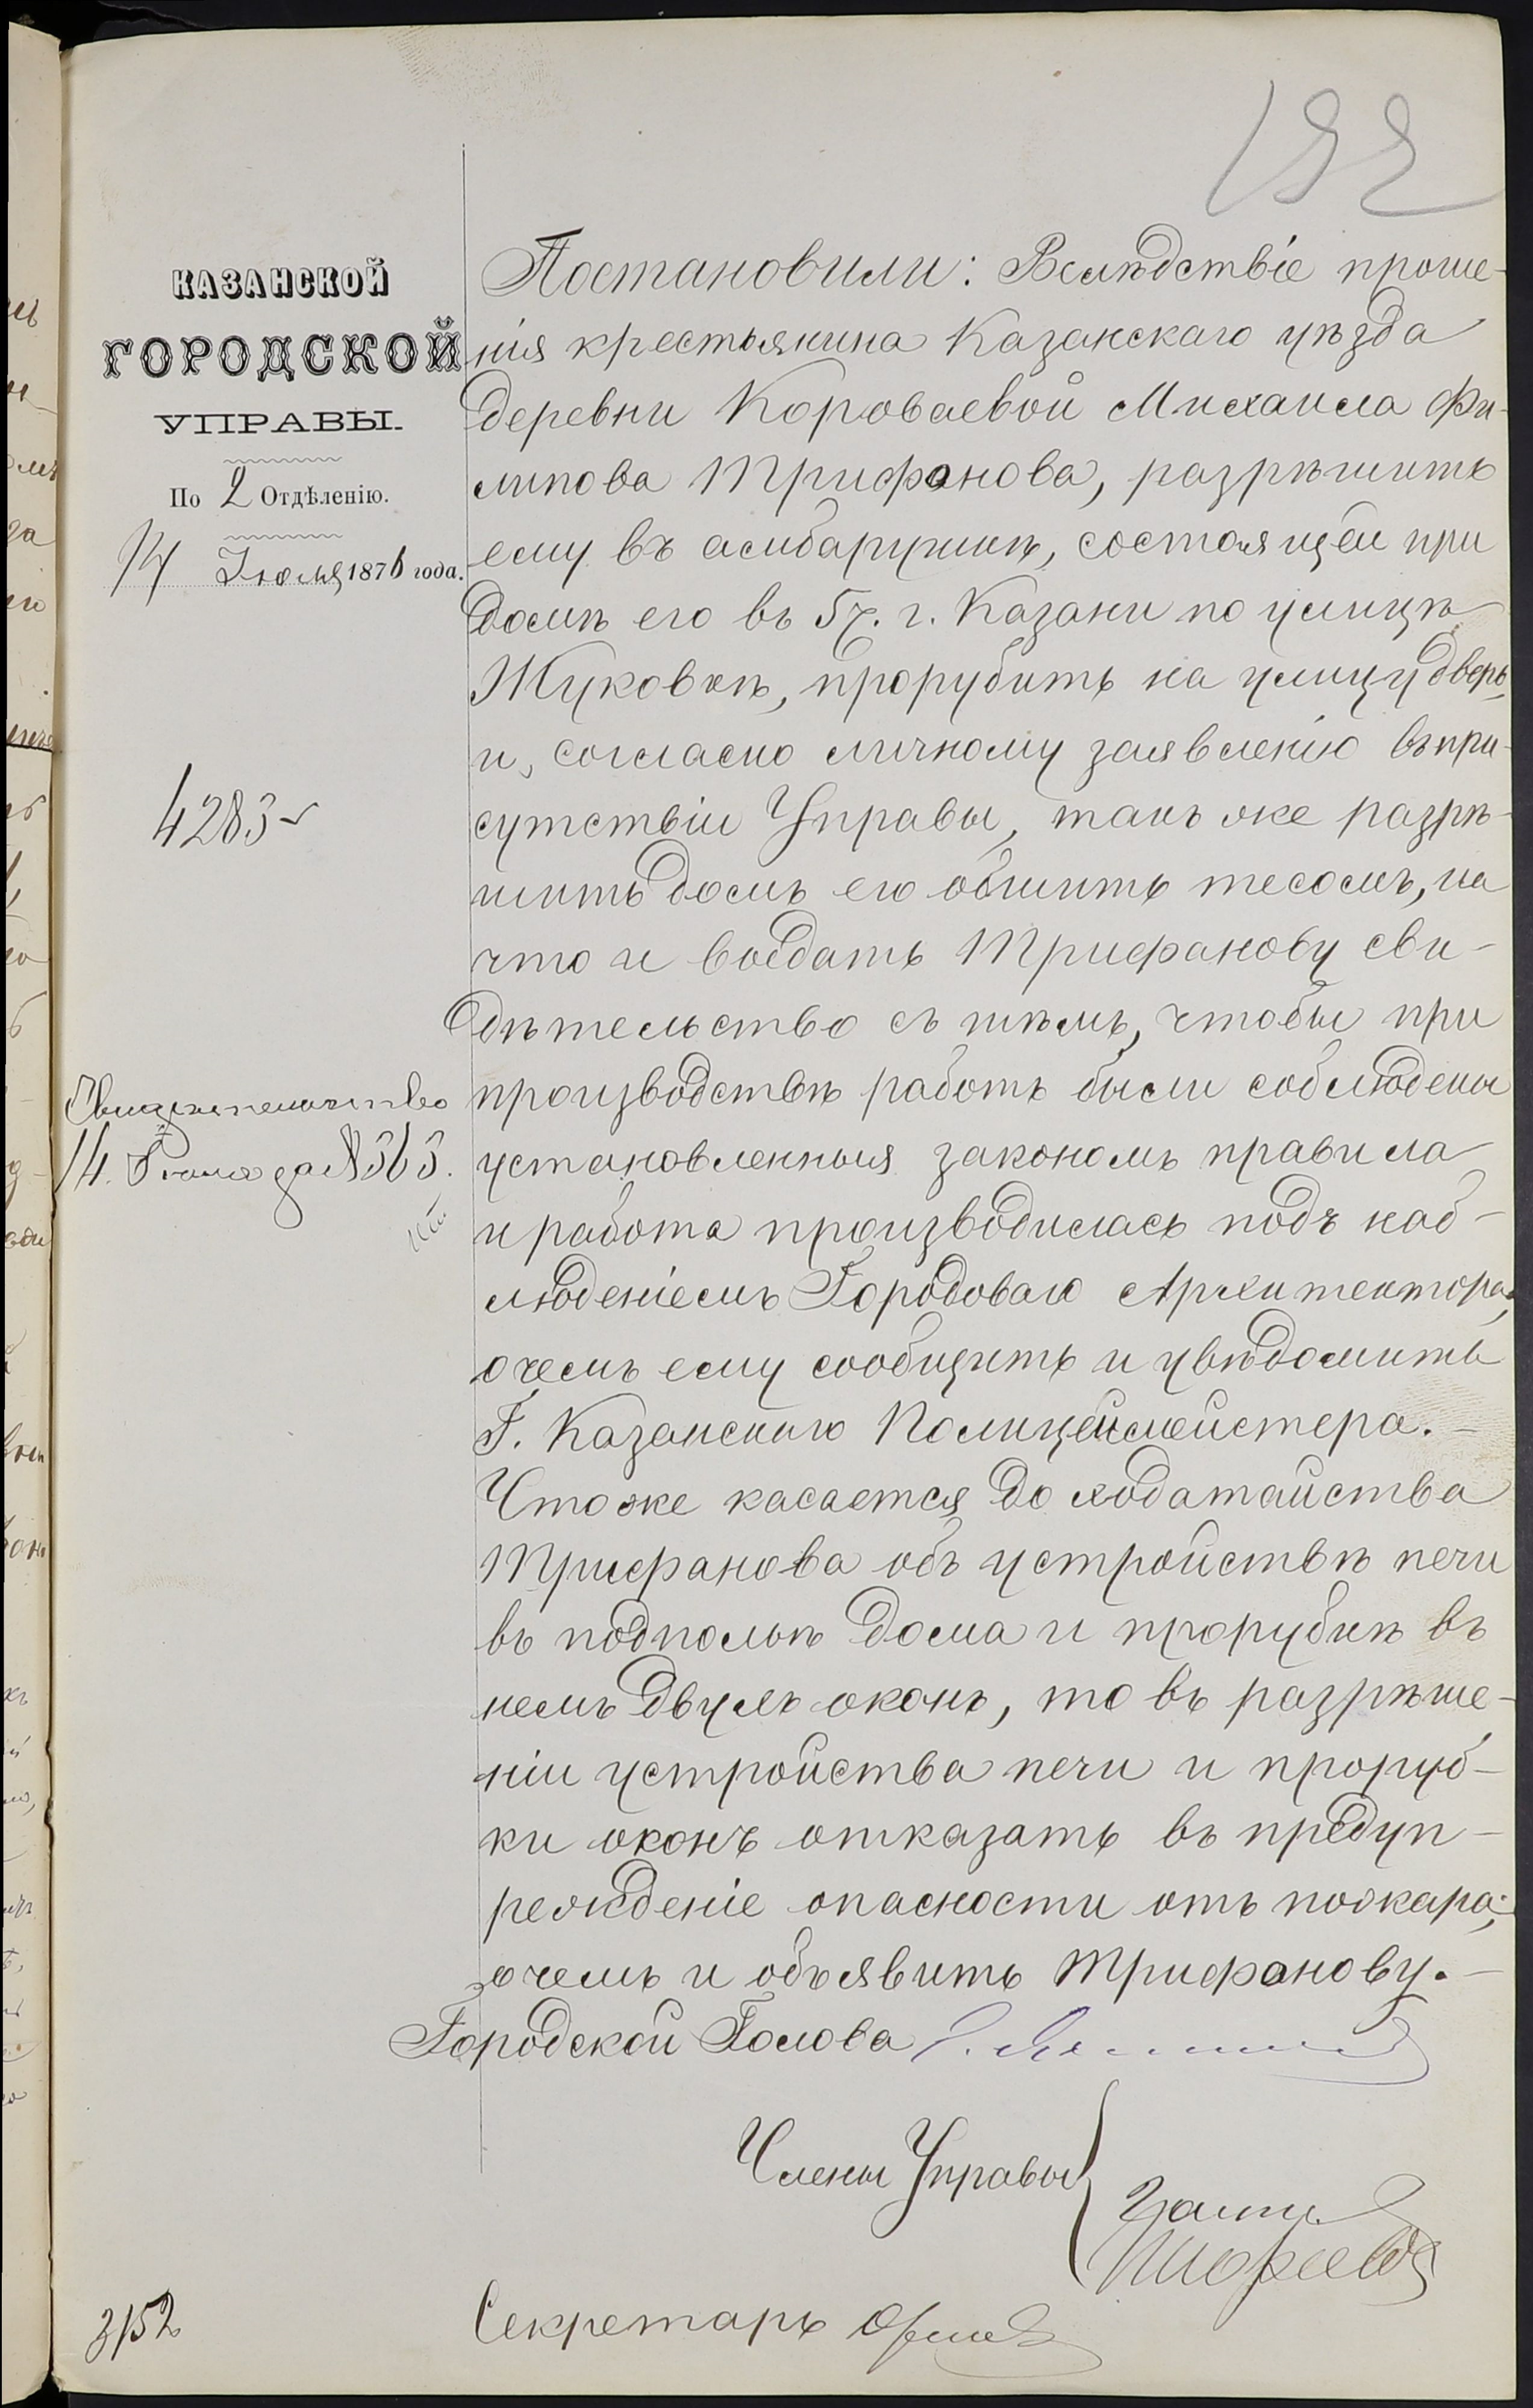 182
КАЗАНСКОЙ
ГОРОДСКОЙ
УПРАВЫ.
По 2 Отдѣленію.
14 Іюля 1876 года.
4283
Свидѣтельство
14 Іюля за № 363.
Постановили: Вслѣдствіе проше-
нія крестьянина Казанскаго уѣзда
деревни Короваевой Михаила Фи-
липова Трифонова, разрѣшить
ему въ амбарушкѣ, состоящей при
домѣ его въ 5 ч. г. Казани по улицѣ
Жуковкѣ, прорубить на улицу дверь,
и, согласно личному заявленію въ при-
сутствіи Управы, такъ же разрѣ-
шить домъ его обшить тесомъ, на
что и выдать Трифанову сви-
дѣтельство съ тѣмъ, чтобы при
производствѣ работъ были соблюдены
установленныя закономъ правила
и работа производилась подъ наб-
люденіемъ Городоваго Архитектора,
о чемъ ему сообщить и увѣдомить
Г. Казанскаго Полицеймейстера.-
Что же касается до ходатайства
Трифанова объ устройствѣ печи
въ подпольѣ дома и прорубкѣ въ
немъ двухъ оконъ, то въ разрѣше-
ніи устройства печи и проруб-
ки оконъ отказать въ предуп-
режденіе опасности отъ пожара;
о чемъ и объявить Трифонову.-
Городской Голова
Члены Управы
Секретарь
3152